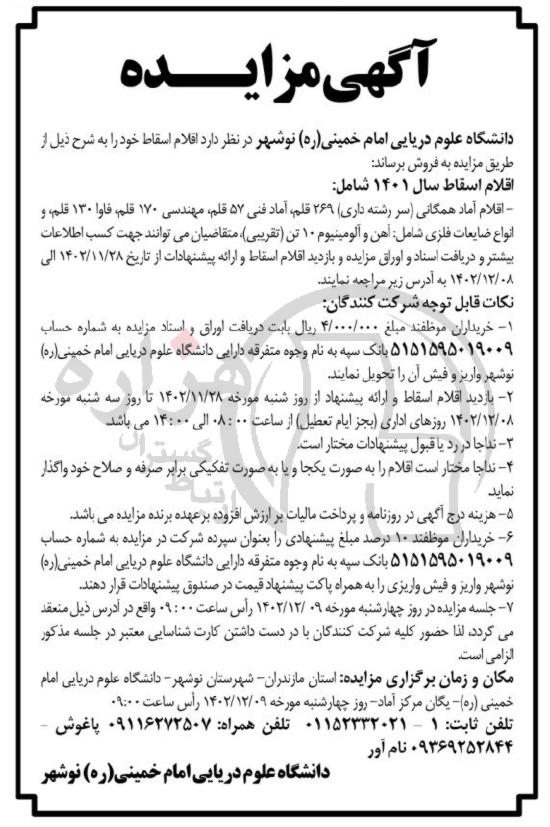 آگهی مزایـــده
دانشگاه علوم دریایی امام خمینی(ره) نوشهر در نظر دارد اقلام اسقاط خود را به شرح ذیل از
طریق مزایده به فروش برساند:
اقلام اسقاط سال ۱۴۰۱ شامل:
- اقلام آماد همگانی (سر رشته داری) ۲۶۹ قلم، آماد فنی ۵۷ قلم، مهندسی ۱۷۰ قلم، فاوا ۱۳۰ قلم، و
انواع ضایعات فلزی شامل: آهن و آلومینیوم ۱۰ تن (تقریبی)، متقاضیان می توانند جهت کسب اطلاعات
بیشتر و دریافت اسناد و اوراق مزایده و بازدید اقلام اسقاط و ارائه پیشنهادات از تاریخ ۱۴۰۲/۱۱/۲۸ الی
۱۴۰۲/۱۲/۰۸ به آدرس زیر مراجعه نمایند.
نکات قابل توجه شرکت کنندگان:
۱- خریداران موظفند مبلغ ۴/۰۰۰/۰۰۰ ریال بابت دریافت اوراق و اسناد مزایده به شماره حساب
۵۱۵۱۵۹۵۰۱۹۰۰۹ بانک سپه به نام وجوه متفرقه دارایی دانشگاه علوم دریایی امام خمینی(ره)
نوشهر واریز و فیش آن را تحویل نمایند.
۲- بازدید اقلام اسقاط و ارائه پیشنهاد از روز شنبه مورخه ۱۴۰۲/۱۱/۲۸ تا روز سه شنبه مورخه
۱۴۰۲/۱۲/۰۸ روزهای اداری (بجز ایام تعطیل) از ساعت ۰۸:۰۰ الی ۱۴:۰۰ می باشد.
۳- نداجا در رد یا قبول پیشنهادات مختار است.
۴- نداجا مختار است اقلام را به صورت یکجا و یا به صورت تفکیکی برابر صرفه و صلاح خود واگذار
نماید.
۵- هزینه درج آگهی در روزنامه و پرداخت مالیات بر ارزش افزوده برعهده برنده مزایده می باشد.
۶- خریداران موظفند ۱۰ درصد مبلغ پیشنهادی را بعنوان سپرده شرکت در مزایده به شماره حساب
۵۱۵۱۵۹۵۰۱۹۰۰۹ بانک سپه به نام وجوه متفرقه دارایی دانشگاه علوم دریایی امام خمینی(ره)
نوشهر واریز و فیش واریزی را به همراه پاکت پیشنهاد قیمت در صندوق پیشنهادات قرار دهند.
۷- جلسه مزایده در روز چهارشنبه مورخه ۰۹ /۱۴۰۲/۱۲ رأس ساعت ۰۹:۰۰ واقع در آدرس ذیل منعقد
می گردد، لذا حضور کلیه شرکت کنندگان با در دست داشتن کارت شناسایی معتبر در جلسه مذکور
الزامی است.
مکان و زمان برگزاری مزایده: استان مازندران- شهرستان نوشهر- دانشگاه علوم دریایی امام
خمینی (ره)- یگان مرکز آماد- روز چهارشنبه مورخه ۱۴۰۲/۱۲/۰۹ رأس ساعت ۰۹:۰۰
تلفن ثابت: ۱ - ۰۱۱۵۲۳۳۲۰۲۱ تلفن همراه: ۰۹۱۱۶۲۷۲۵۰۷ پاغوش -
۰۹۳۶۹۲۵۲۸۴۴ نام آور
دانشگاه علوم دریایی امام خمینی (ره) نوشهر
هزاره
گستران
ارتباط